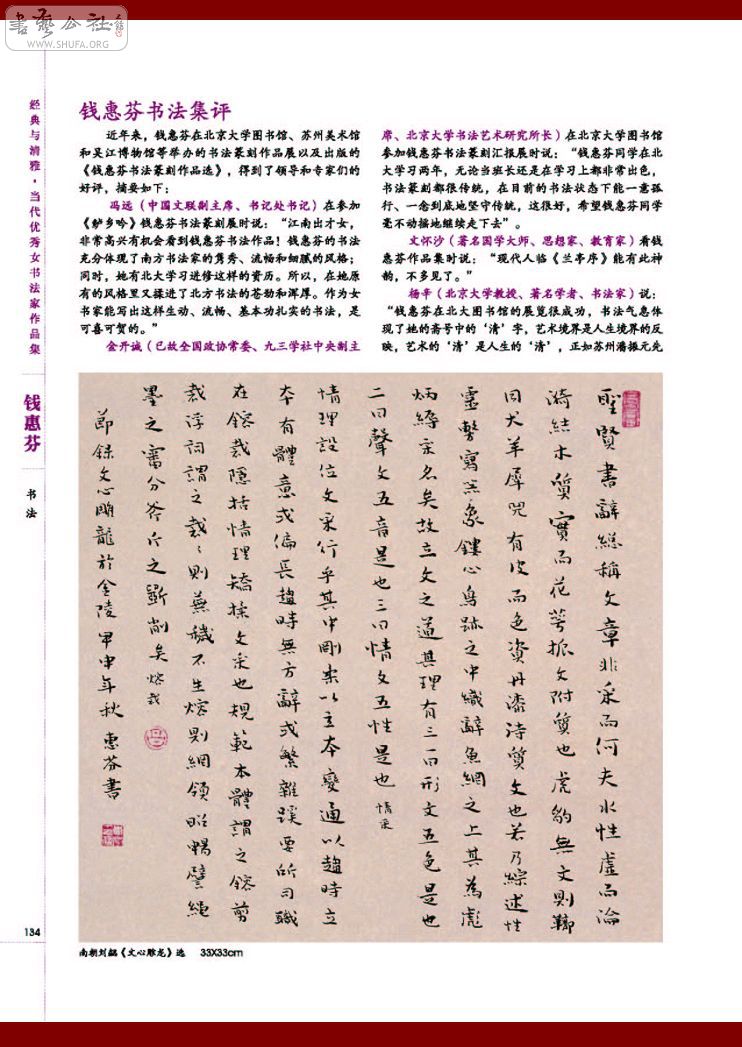 書藝公社
WWW.SHUFA.ORG
经典与清雅·当代优秀女书法家作品集
钱惠芬
书法
134
钱惠芬书法集评
近年来，钱惠芬在北京大学图书馆、苏州美术馆
和吴江博物馆等举办的书法篆刻作品展以及出版的
《钱惠芬书法篆刻作品选》，得到了领导和专家们的
好评，摘要如下：
冯远（中国文联副主席、书记处书记）在参加
《鲈乡吟》钱惠芬书法篆刻展时说：“江南出才女，
非常高兴有机会看到钱惠芬书法作品！钱惠芬的书法
充分体现了南方书法家的隽秀、流畅和细腻的风格；
同时，她有北大学习进修这样的资历。所以，在她原
有的风格里又揉进了北方书法的苍劲和浑厚。作为女
书家能写出这样生动、流畅、基本功扎实的书法，是
可喜可贺的。”
金开诚（已故全国政协常委、九三学社中央副主
席、北京大学书法艺术研究所长）在北京大学图书馆
参加钱惠芬书法篆刻汇报展时说：“钱惠芬同学在北
大学习两年，无论当班长还是在学习上都非常出色，
书法篆刻都很传统，在目前的书法状态下能一意孤
行、一念到底地坚守传统，这很好，希望钱惠芬同学
毫不动摇地继续走下去”。
文怀沙（著名国学大师、思想家、教育家）看钱
惠芬作品集时说：“现代人临《兰亭序》能有此神
韵，不多见了。”
杨辛（北京大学教授、著名学者、书法家）说：
“钱惠芬在北大图书馆的展览很成功，书法气息体
现了她的斋号中的‘清’字，艺术境界是人生境界的反
映，艺术的‘清’是人生的‘清’，正如苏州潘振元先
聖賢書辭總稱文章非采而何夫水性虛而淪
漪結木質實而花萼振文附質也虎豹無文則鞹
同犬羊犀兕有皮而色資丹漆待質文也若乃綜述性
靈敷寫器象鏤心鳥跡之中織辭魚網之上其為彪
炳縟采名矣故立文之道其理有三一曰形文五色是也
二曰聲文五音是也三曰情文五性是也 情采
情理設位文采行乎其中剛柔以立本變通以趨時立
本有體意或偏長趨時無方辭或繁雜蹊要所司職
在鎔裁隱括情理矯揉文采也規範本體謂之鎔剪
裁浮詞謂之裁裁則蕪穢不生熔則綱領昭暢譬繩
墨之審分斧斤之斵削矣 熔裁
節錄文心雕龍於金陵甲申年秋 惠芬書
南朝刘勰《文心雕龙》选 33X33cm